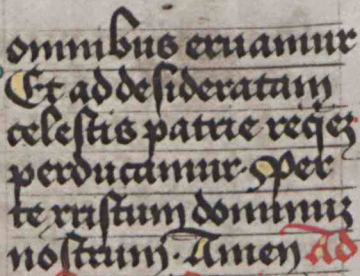 omnibus eruamur
Et ad desideratam
celestis patrie reqeꝫ
perducamur. Per
te xristum dominuꝫ
nostrum. Amen Ad